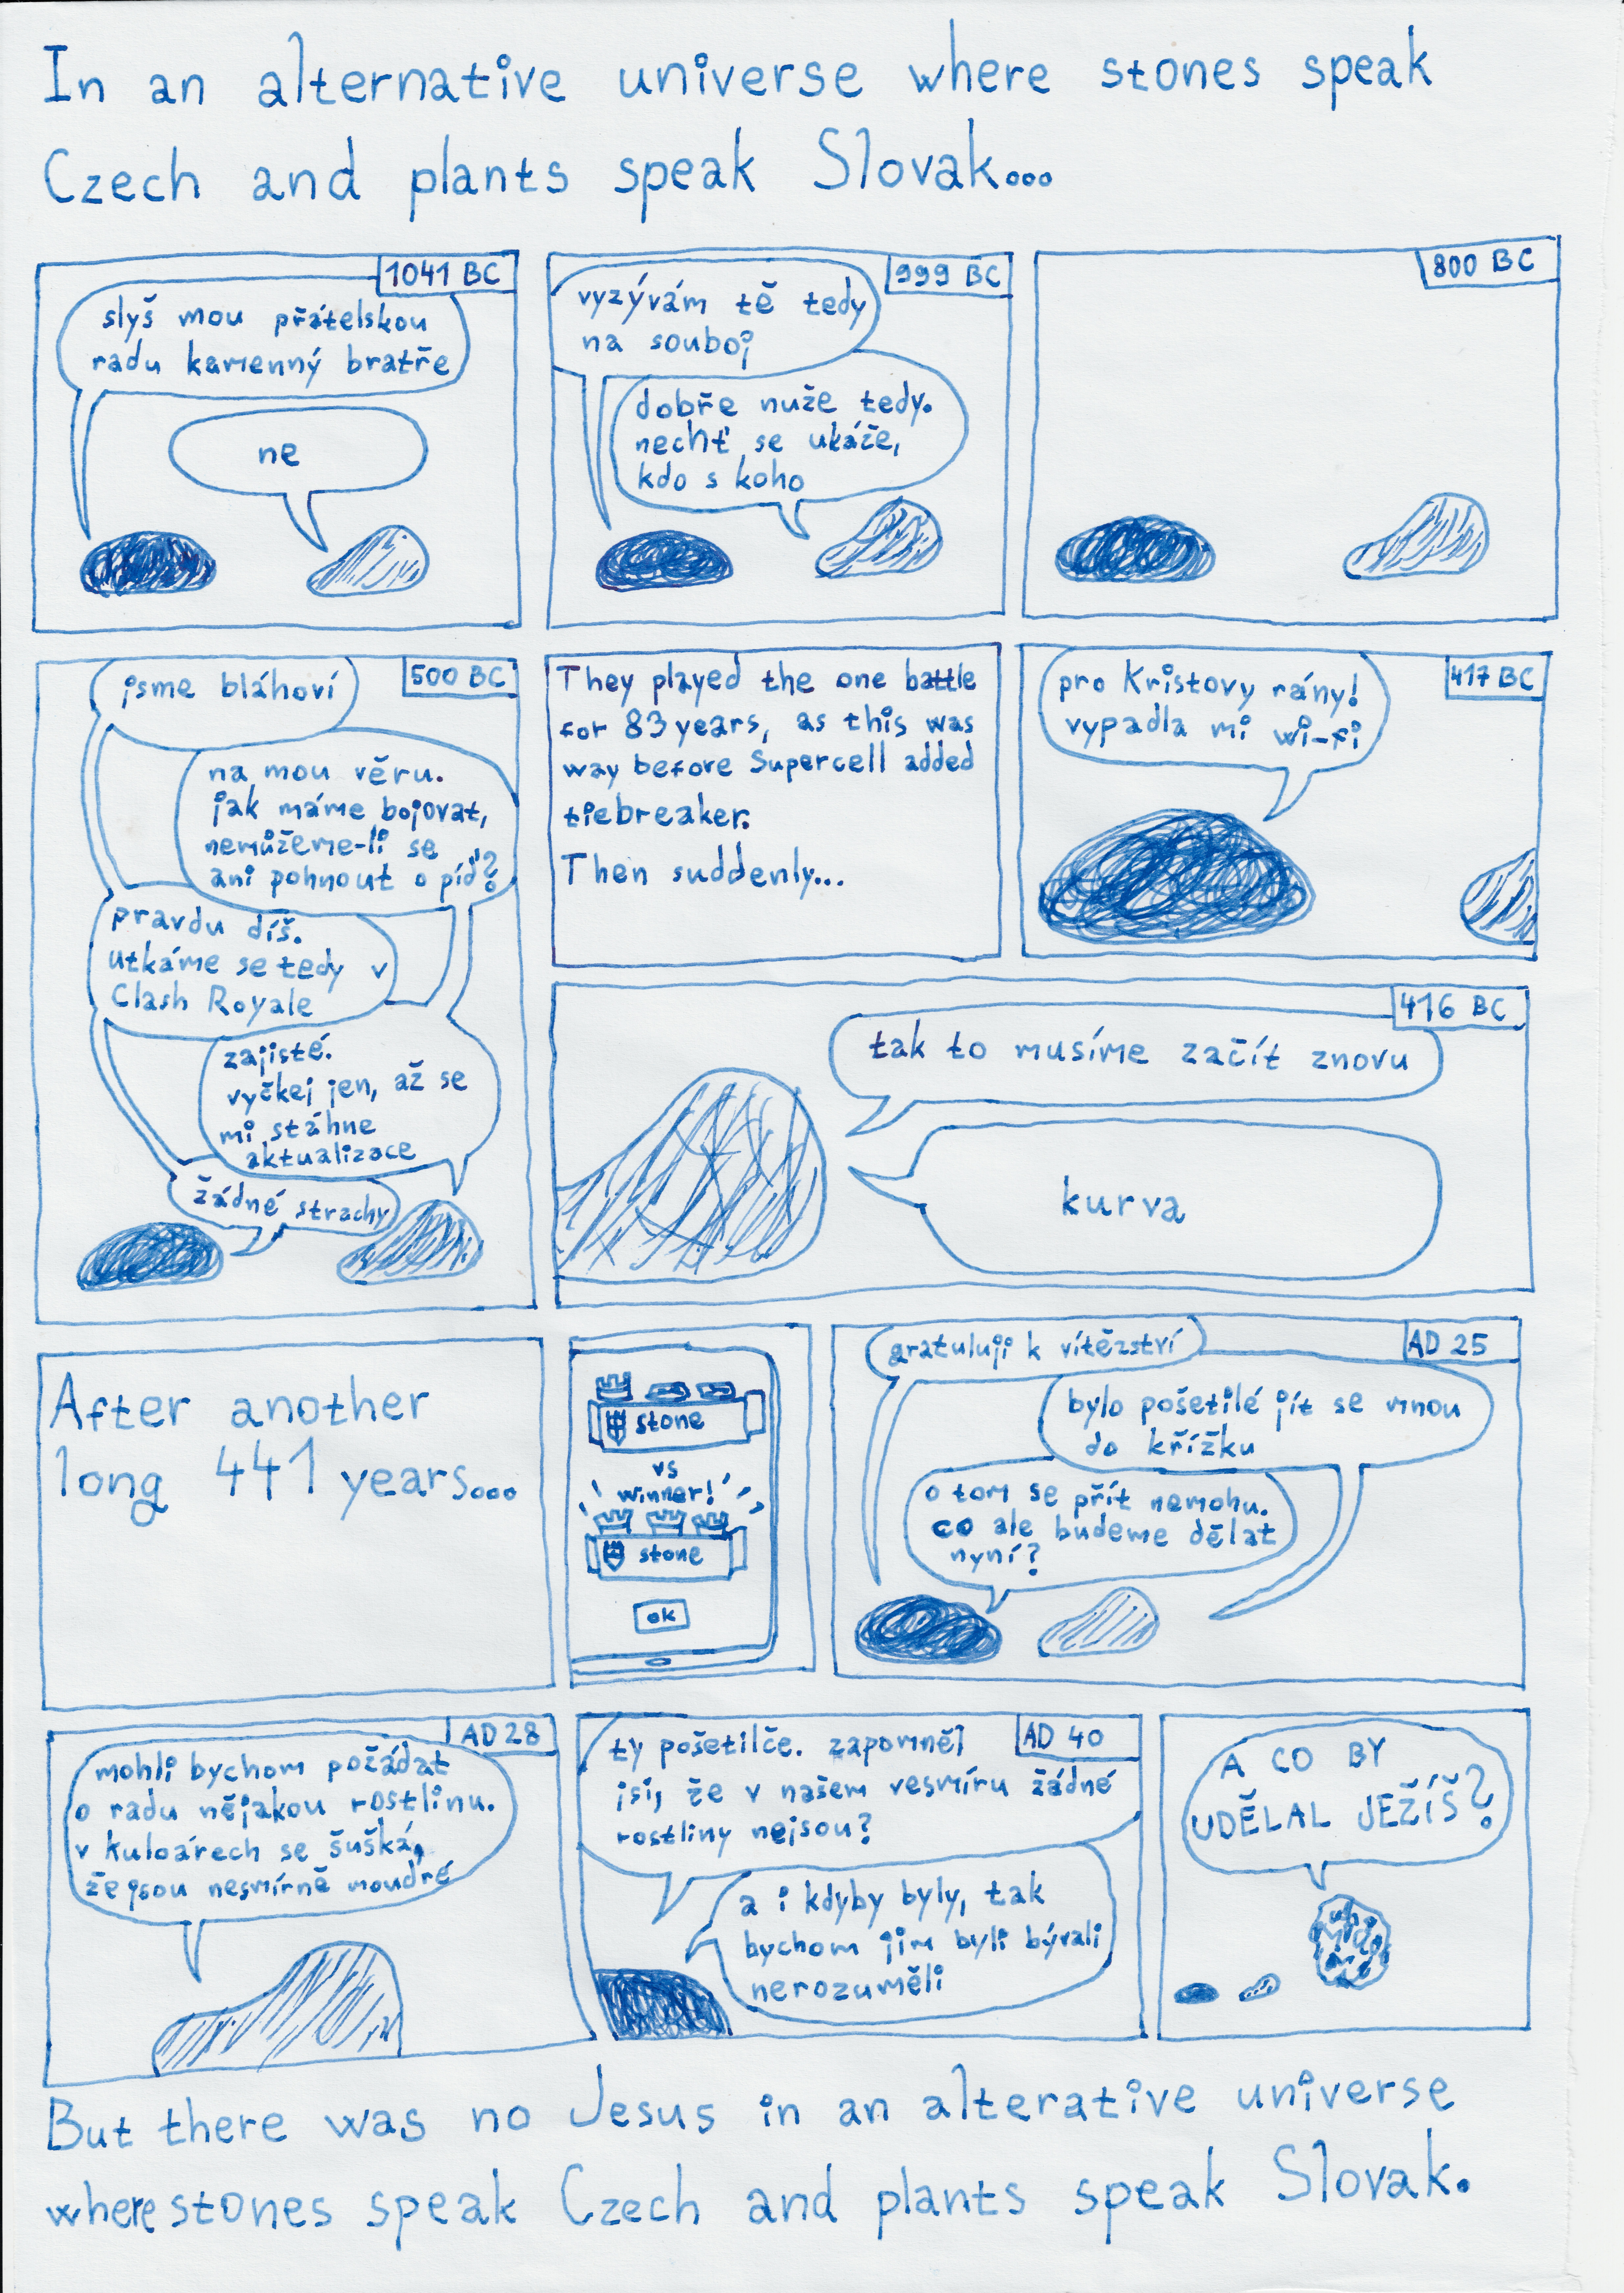 In an alternative universe where stones speak
Czech and plants speak Slovak...
1041 BC
slyš mou přátelskou
radu kamenný bratře
ne
999 BC
vyzývám tě tedy
na souboj
dobře nuže tedy.
nechť se ukáže,
kdo s koho
800 BC
500 BC
jsme bláhoví
na mou věru.
jak máme bojovat,
nemůžeme-li se
ani pohnout o píď?
pravdu díš.
utkáme se tedy v
Clash Royale
zajisté.
vyčkej jen, až se
mi stáhne
aktualizace
žádné strachy
They played the one battle
for 83 years, as this was
way before Supercell added
tiebreaker.
Then suddenly...
417 BC
pro Kristovy rány!
vypadla mi wi-fi
416 BC
tak to musíme začít znovu
kurva
After another
long 441 years...
stone
vs
winner!
stone
ok
AD 25
gratuluji k vítězství
bylo pošetilé jít se mnou
do křížku
o tom se přít nemohu.
co ale budeme dělat
nyní?
AD 28
mohli bychom požádat
o radu nějakou rostlinu.
v kuloárech se šušká,
že jsou nesmírně moudré
AD 40
ty pošetilče. zapomněl
jsi, že v našem vesmíru žádné
rostliny nejsou?
a i kdyby byly, tak
bychom jim byli bývali
nerozuměli
A CO BY
UDĚLAL JEŽÍŠ?
But there was no Jesus in an alterative universe
where stones speak Czech and plants speak Slovak.